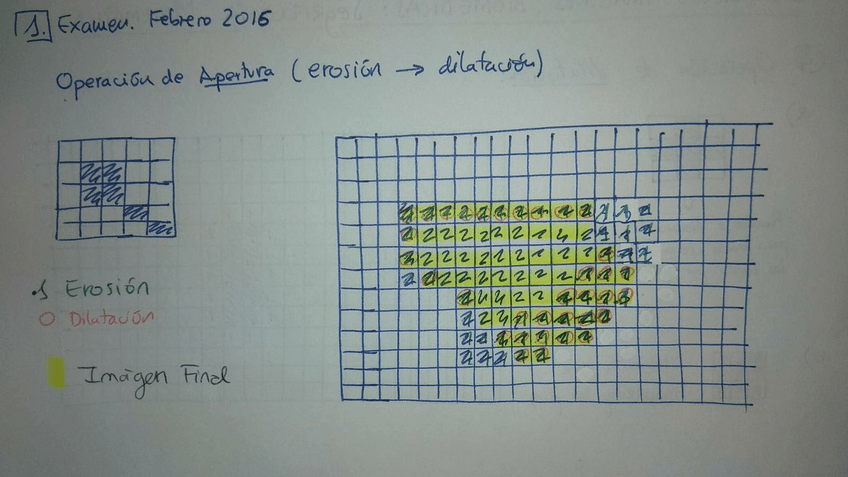 1. Examen. Febrero 2016
Operación de Apertura (erosión → dilatación)
Erosión
Dilatación
Imágen Final